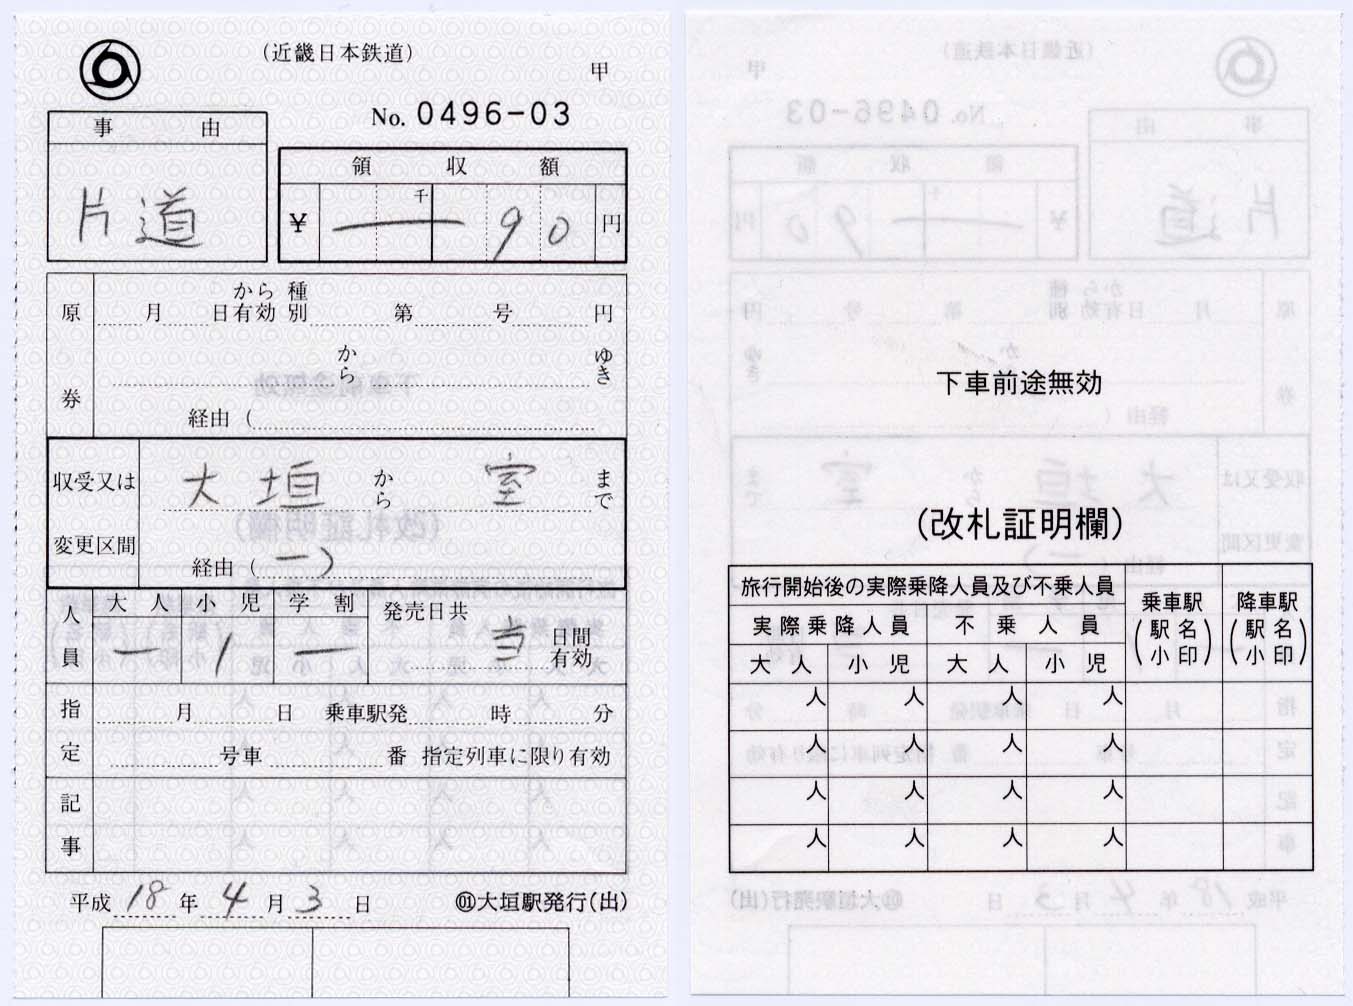 (近畿日本鉄道)
甲
No. 0496-03
事由
片道
領収額
千
¥ ― 90 円
原券
月 日から有効 種別 第 号 円
から ゆき
経由 (
収受又は変更区間
大垣 から 室 まで
経由 ( ― )
人員
大人 小児 学割
― 1 ―
発売日共 当 日間有効
指定
月 日 乗車駅発 時 分
号車 番 指定列車に限り有効
記事
平成 18 年 4 月 3 日
01 大垣駅発行(出)
下車前途無効
(改札証明欄)
旅行開始後の実際乗降人員及び不乗人員
乗車駅(駅名小印)
降車駅(駅名小印)
実際乗降人員 不乗人員
大人 小児 大人 小児
人 人 人 人
人 人 人 人
人 人 人 人
人 人 人 人